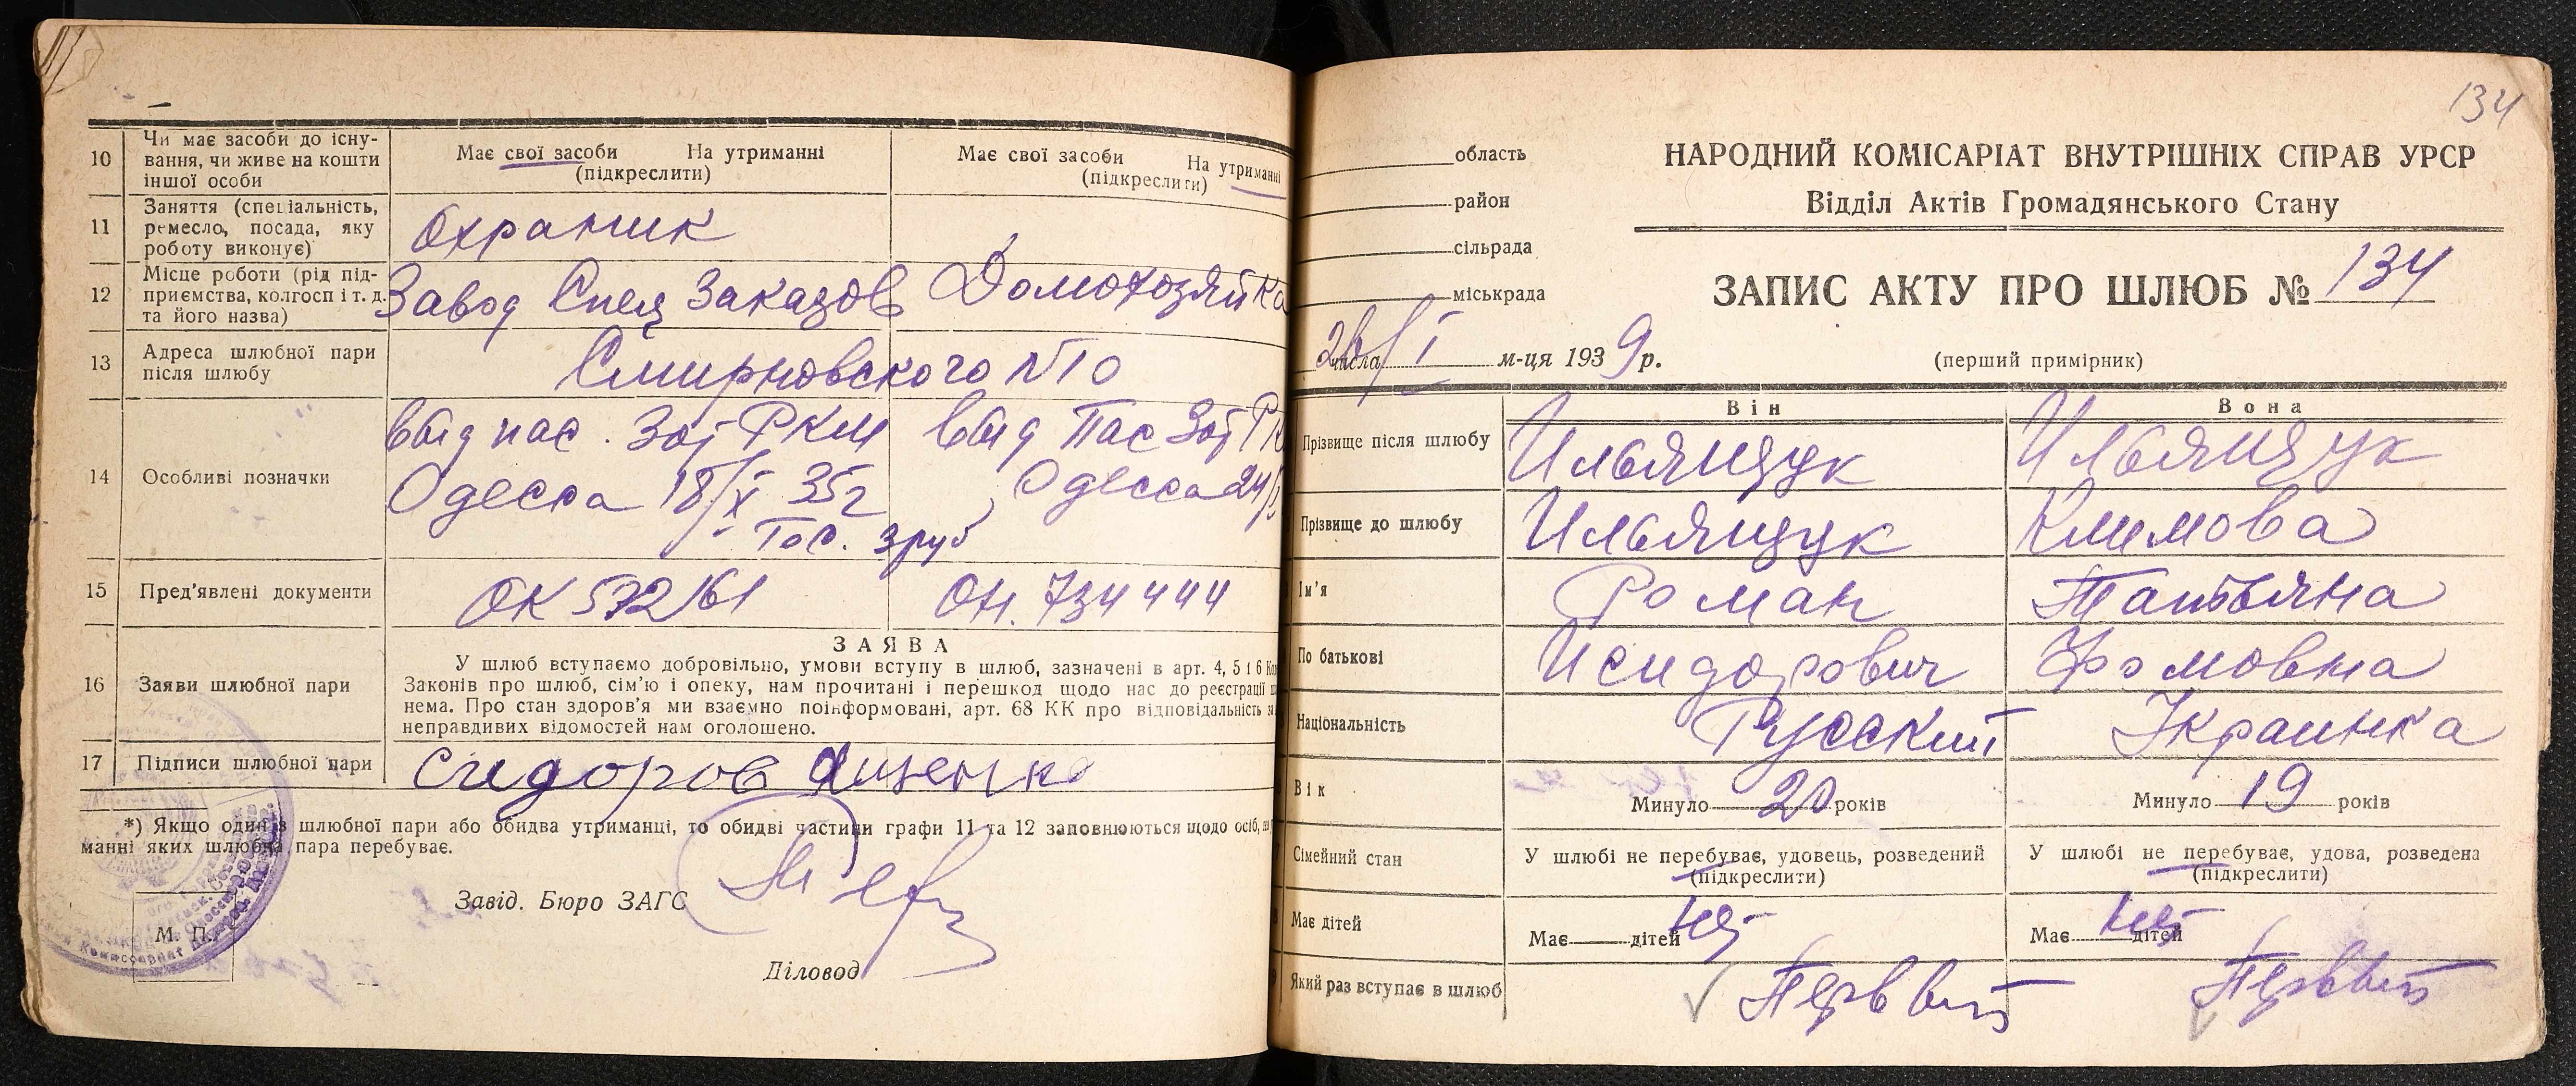 10 Чи має засоби до існу-
вання, чи живе на кошти
іншої особи
Має свої засоби На утриманні
(підкреслити)
Має свої засоби На утриманні
(підкреслити)
11 Заняття (спеціальність,
ремесло, посада, яку
роботу виконує)
Охраник
12 Місце роботи (рід під-
приємства, колгосп і т. д.
та його назва)
Завод Спец Заказов
Домохозяйка
13 Адреса шлюбної пари
після шлюбу
Смирновского №10
14 Особливі позначки
выд пас. Зот РКМ
Одесса 18/X 35г
выд Пас Зот
Одесса 24/
Гос.
15 Пред'явлені документи
ОК 572161
ОН. 734444
16 Заяви шлюбної пари
ЗАЯВА
У шлюб вступаємо добровільно, умови вступу в шлюб, зазначені в арт. 4, 5 і 6
Законів про шлюб, сім'ю і опеку, нам прочитані і перешкод щодо нас до реєстрації
нема. Про стан здоров'я ми взаємно поінформовані, арт. 68 КК про відповідальність
неправдивих відомостей нам оголошено.
17 Підписи шлюбної пари
Сидоров Ященко
*) Якщо один з шлюбної пари або обидва утриманці, то обидві частини графи 11 та 12 заповнюються щодо осіб, на
манні яких шлюбна пара перебуває.
Завід. Бюро ЗАГС
М. П.
Діловод
134
область
район
сільрада
міськрада
НАРОДНИЙ КОМІСАРІАТ ВНУТРІШНІХ СПРАВ УРСР
Відділ Актів Громадянського Стану
ЗАПИС АКТУ ПРО ШЛЮБ № 134
26/I числа м-ця 1939 р.
(перший примірник)
Він Вона
Прізвище після шлюбу Ильящук Ильящук
Прізвище до шлюбу Ильящук Климова
Ім'я Роман Татьяна
По батькові Исидорович Фомовна
Національність Русский Украинка
Вік Минуло 20 років Минуло 19 років
Сімейний стан
У шлюбі не перебуває, удовець, розведений
(підкреслити)
У шлюбі не перебуває, удова, розведена
(підкреслити)
Має дітей Має нет дітей Має нет дітей
Який раз вступає в шлюб Перввый Перввый